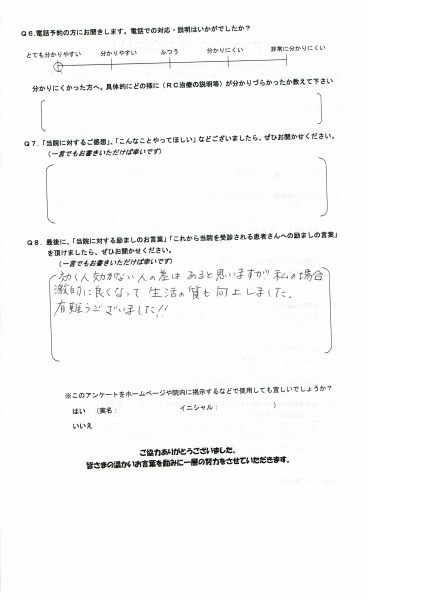 Q6.電話予約の方にお聞きします。電話での対応・説明はいかがでしたか？
とても分かりやすい 分かりやすい ふつう 分かりにくい 非常に分かりにくい
分かりにくかった方へ。具体的にどの様に（RC治療の説明等）が分かりづらかったか教えて下さい
Q7.「当院に対するご感想」、「こんなことやってほしい」などございましたら、ぜひお聞かせください。
（一言でもお書きいただければ幸いです）
Q8. 最後に、「当院に対する励ましのお言葉」「これから当院を受診される患者さんへの励ましの言葉」
を頂けましたら、ぜひお聞かせください。
（一言でもお書きいただければ幸いです）
効く人効かない人の差はあると思いますが私の場合
激的に良くなって生活の質も向上しました。
有難うございました!!
※このアンケートをホームページや院内に掲示するなどで使用しても宜しいでしょうか？
はい （実名： イニシャル： ）
いいえ
ご協力ありがとうございました。
皆さまの温かいお言葉を励みに一層の努力をさせていただきます。